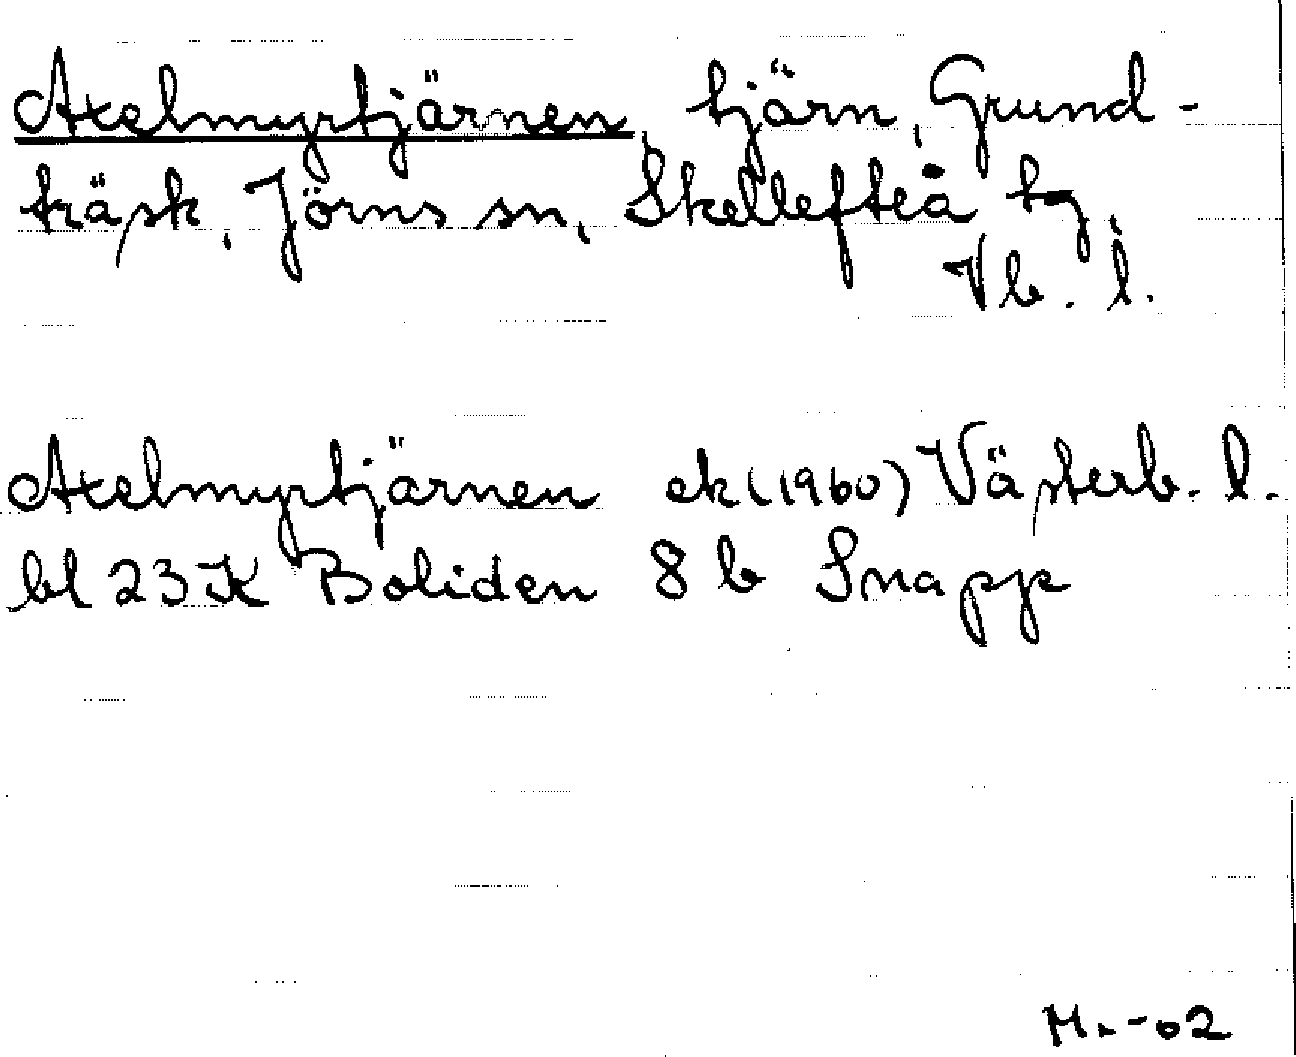 Axelmyrtjärnen, tjärn, Grund-
träsk, Jörns sn, Skellefteå tg,
Vb. l.
Axelmyrtjärnen ek (1960) Västerb. l.
bl 23K Boliden 8 b Snapp
-02